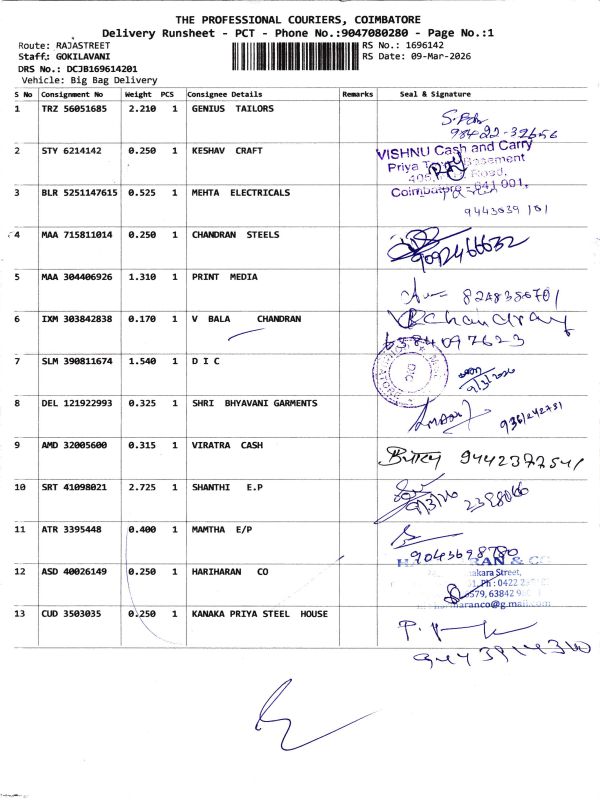 THE PROFESSIONAL COURIERS, COIMBATORE
Delivery Runsheet - PCT - Phone No.:9047080280 - Page No.:1
Route: RAJASTREET RS No.: 1696142
Staff: GOKILAVANI RS Date: 09-Mar-2026
DRS No.: DCJB169614201
Vehicle: Big Bag Delivery
S No Consignment No Weight PCS Consignee Details Remarks Seal & Signature
1 TRZ 56051685 2.210 1 GENIUS TAILORS
98422-32656
2 STY 6214142 0.250 1 KESHAV CRAFT
VISHNU Cash and Carry
Priya Basement
Road,
Coimbatore - 641 001,
3 BLR 5251147615 0.525 1 MEHTA ELECTRICALS
9443039 101
4 MAA 715811014 0.250 1 CHANDRAN STEELS
9092466632
5 MAA 304406926 1.310 1 PRINT MEDIA
8248386701
6 IXM 303842838 0.170 1 V BALA CHANDRAN
6384097623
7 SLM 390811674 1.540 1 D I C
DIC
9/3/2026
8 DEL 121922993 0.325 1 SHRI BHYAVANI GARMENTS
9361242731
9 AMD 32005600 0.315 1 VIRATRA CASH
9442377541
10 SRT 41098021 2.725 1 SHANTHI E.P
9/3/26 2398066
11 ATR 3395448 0.400 1 MAMTHA E/P
9043698780
12 ASD 40026149 0.250 1 HARIHARAN CO
RAN & CO
akara Street,
Ph : 0422
6579, 63842
haranco@gmail.com
13 CUD 3503035 0.250 1 KANAKA PRIYA STEEL HOUSE
9443914310